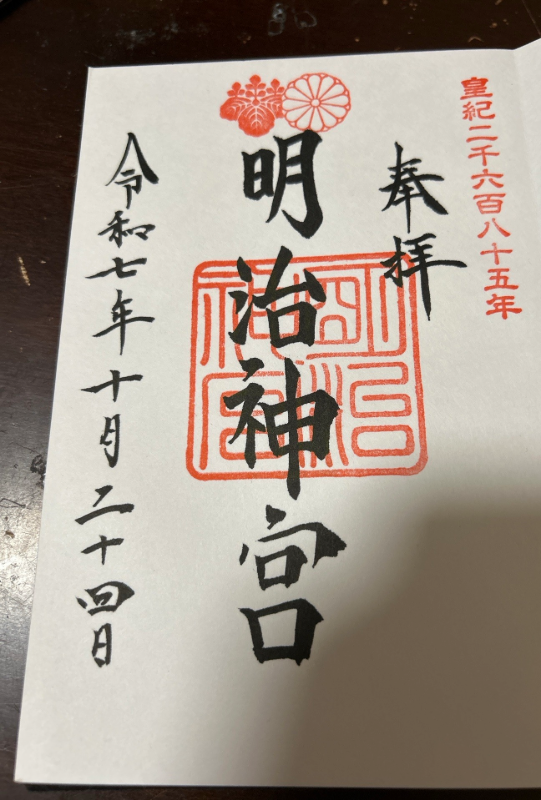 皇紀二千六百八十五年
奉拝
明治神宮
明治神宮
令和七年十月二十四日